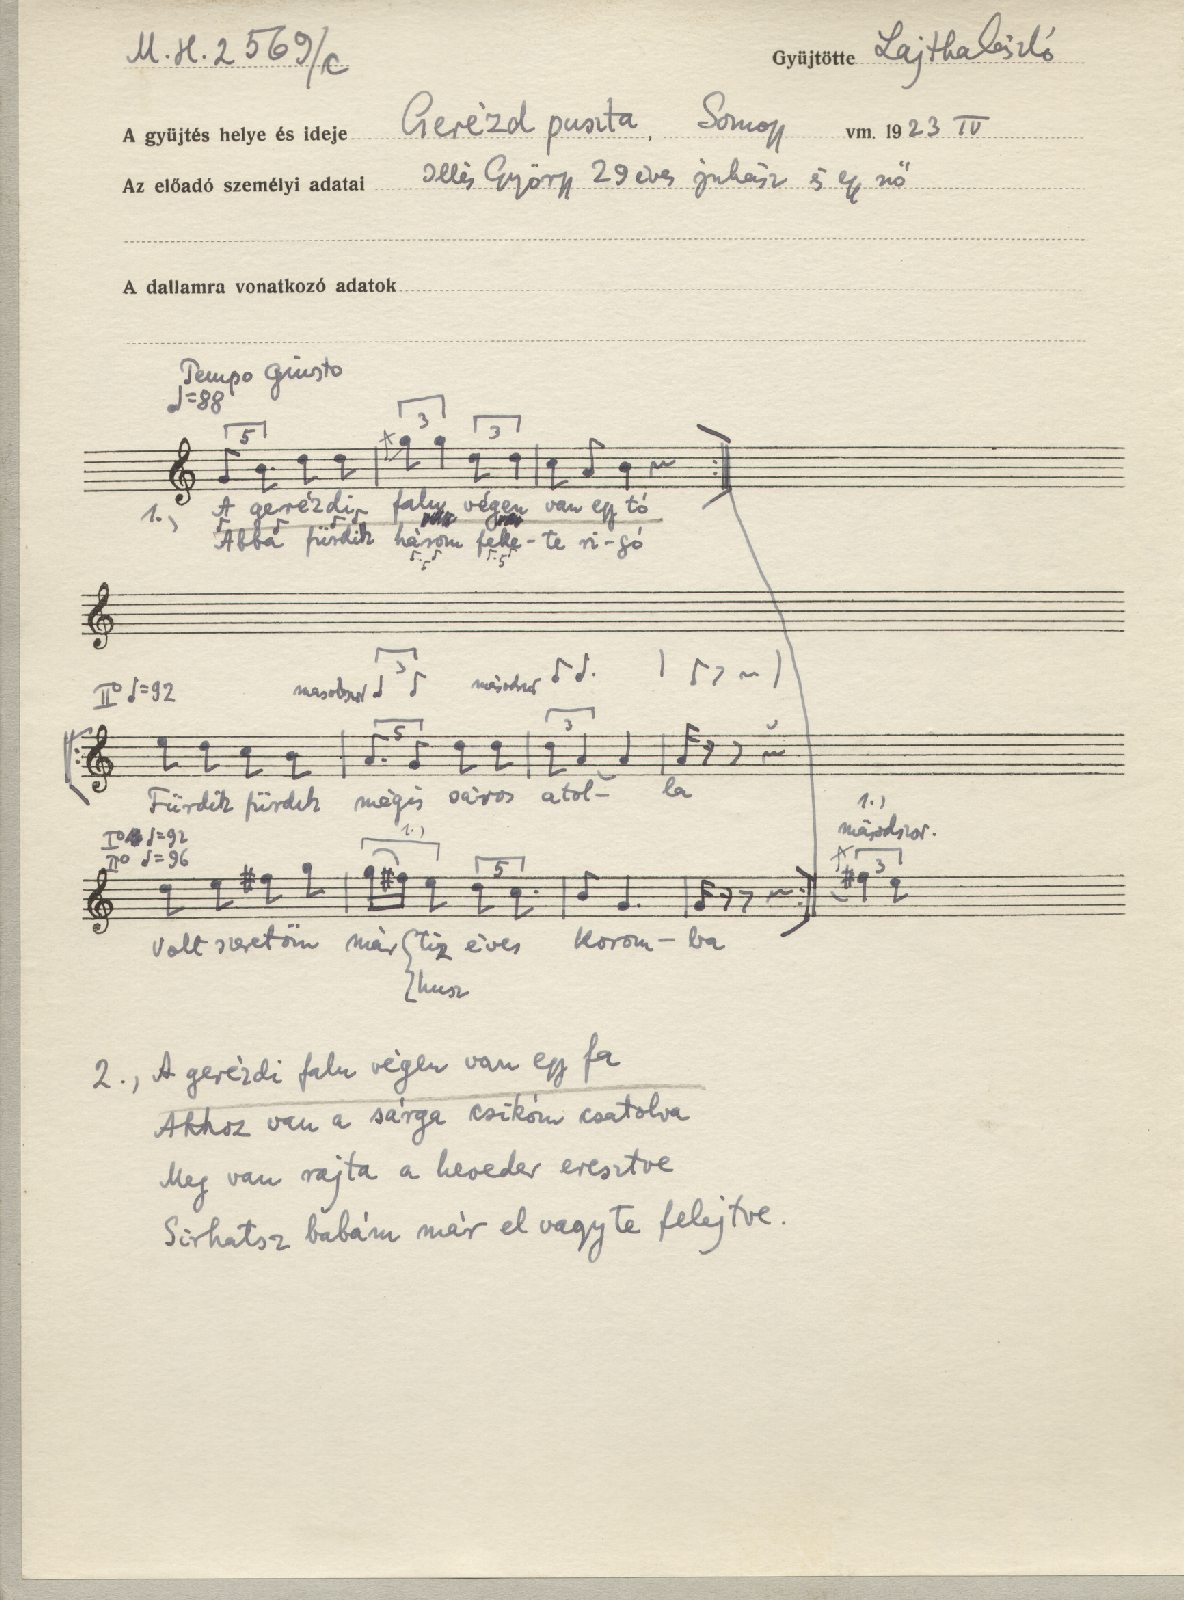 M.H.2569/c
Gyüjtötte Lajtha László
A gyüjtés helye és ideje Gerézd puszta, Somogy vm. 1923 IV
Az előadó személyi adatai Illés György 29 éves juhász és egy nő
A dallamra vonatkozó adatok
Tempo giusto
♩=88
5 3 3
1., A gerézdi falu végen van egy tó
Abba fürdik három feke-te ri-gó
II° ♩=92 másodszor 3 másodszor
5 3
Fürdik fürdik mégis sáros a tol- la
I° ♩=92
II° ♩=96
1.) 5
1.) másodszor.
3
Volt szeretőm már tiz éves korom- ba
husz
2., A gerézdi falu végen van egy fa
Ahhoz van a sárga csikóm csatolva
Meg van rajta a heveder eresztve
Sirhatsz babám már el vagy te felejtve.